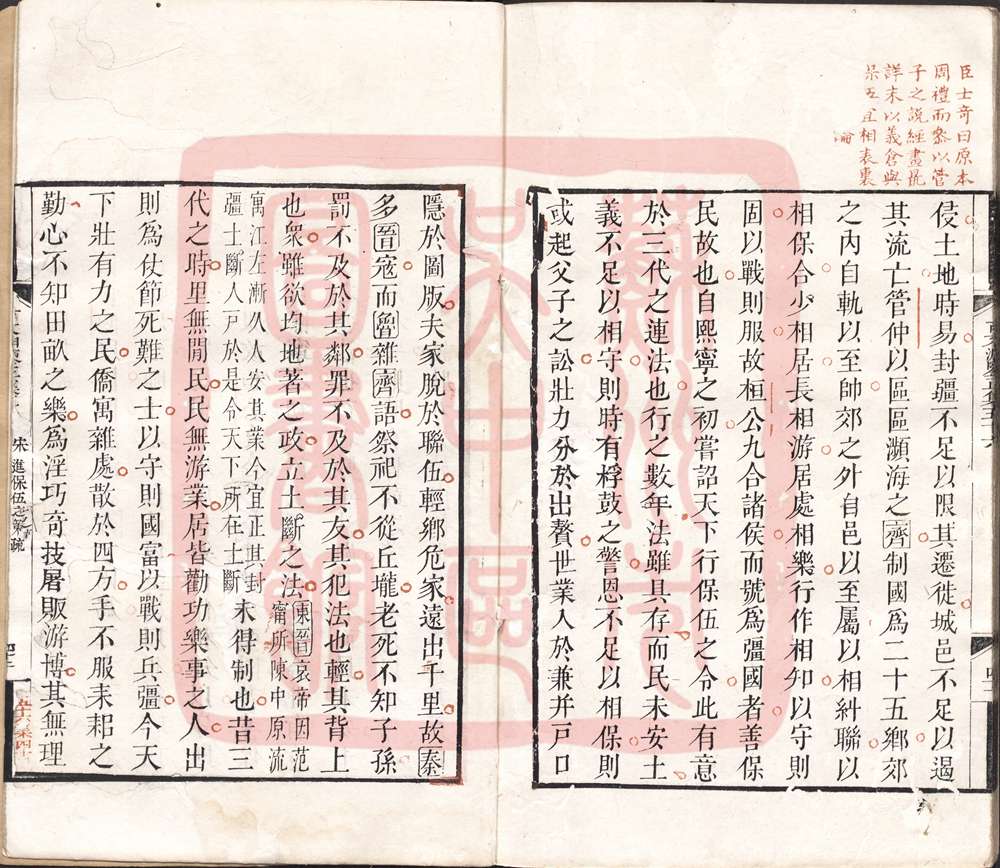 臣士奇曰原本
周禮而參以管
子之說經畫既
詳末以義倉與
保五宜相表裏
論
侵土地時易封疆不足以限其遷徙城邑不足以遏
其流亡管仲以區區瀕海之齊制國爲二十五鄉郊
之內自軌以至帥郊之外自邑以至屬以相糾聯以
相保合少相居長相游居處相樂行作相知以守則
固以戰則服故桓公九合諸侯而號爲彊國者善保
民故也自熙寧之初嘗詔天下行保伍之令此有意
於三代之連法也行之數年法雖具存而民未安土
義不足以相守則時有桴鼓之警恩不足以相保則
或起父子之訟壯力分於出贅世業入於兼并戸口
隱於圖版夫家脫於聯伍輕鄉危家遠出千里故秦
多晉寇而魯雜齊語祭祀不從丘壠老死不知子孫
罰不及於其鄰罪不及於其友其犯法也輕其背上
也衆雖欲均地著之政立土斷之法東晉哀帝因范
甯所陳中原流
寓江左漸久人安其業今宜正其封
疆土斷人戸於是令天下所在土斷未得制也昔三
代之時里無閒民民無游業居皆勸功樂事之人出
則爲仗節死難之士以守則國富以戰則兵彊今天
下壯有力之民僑寓雜處散於四方手不服耒耜之
勤心不知田畝之樂爲淫巧奇技屠販游博其無理
宋進保伍之策疏